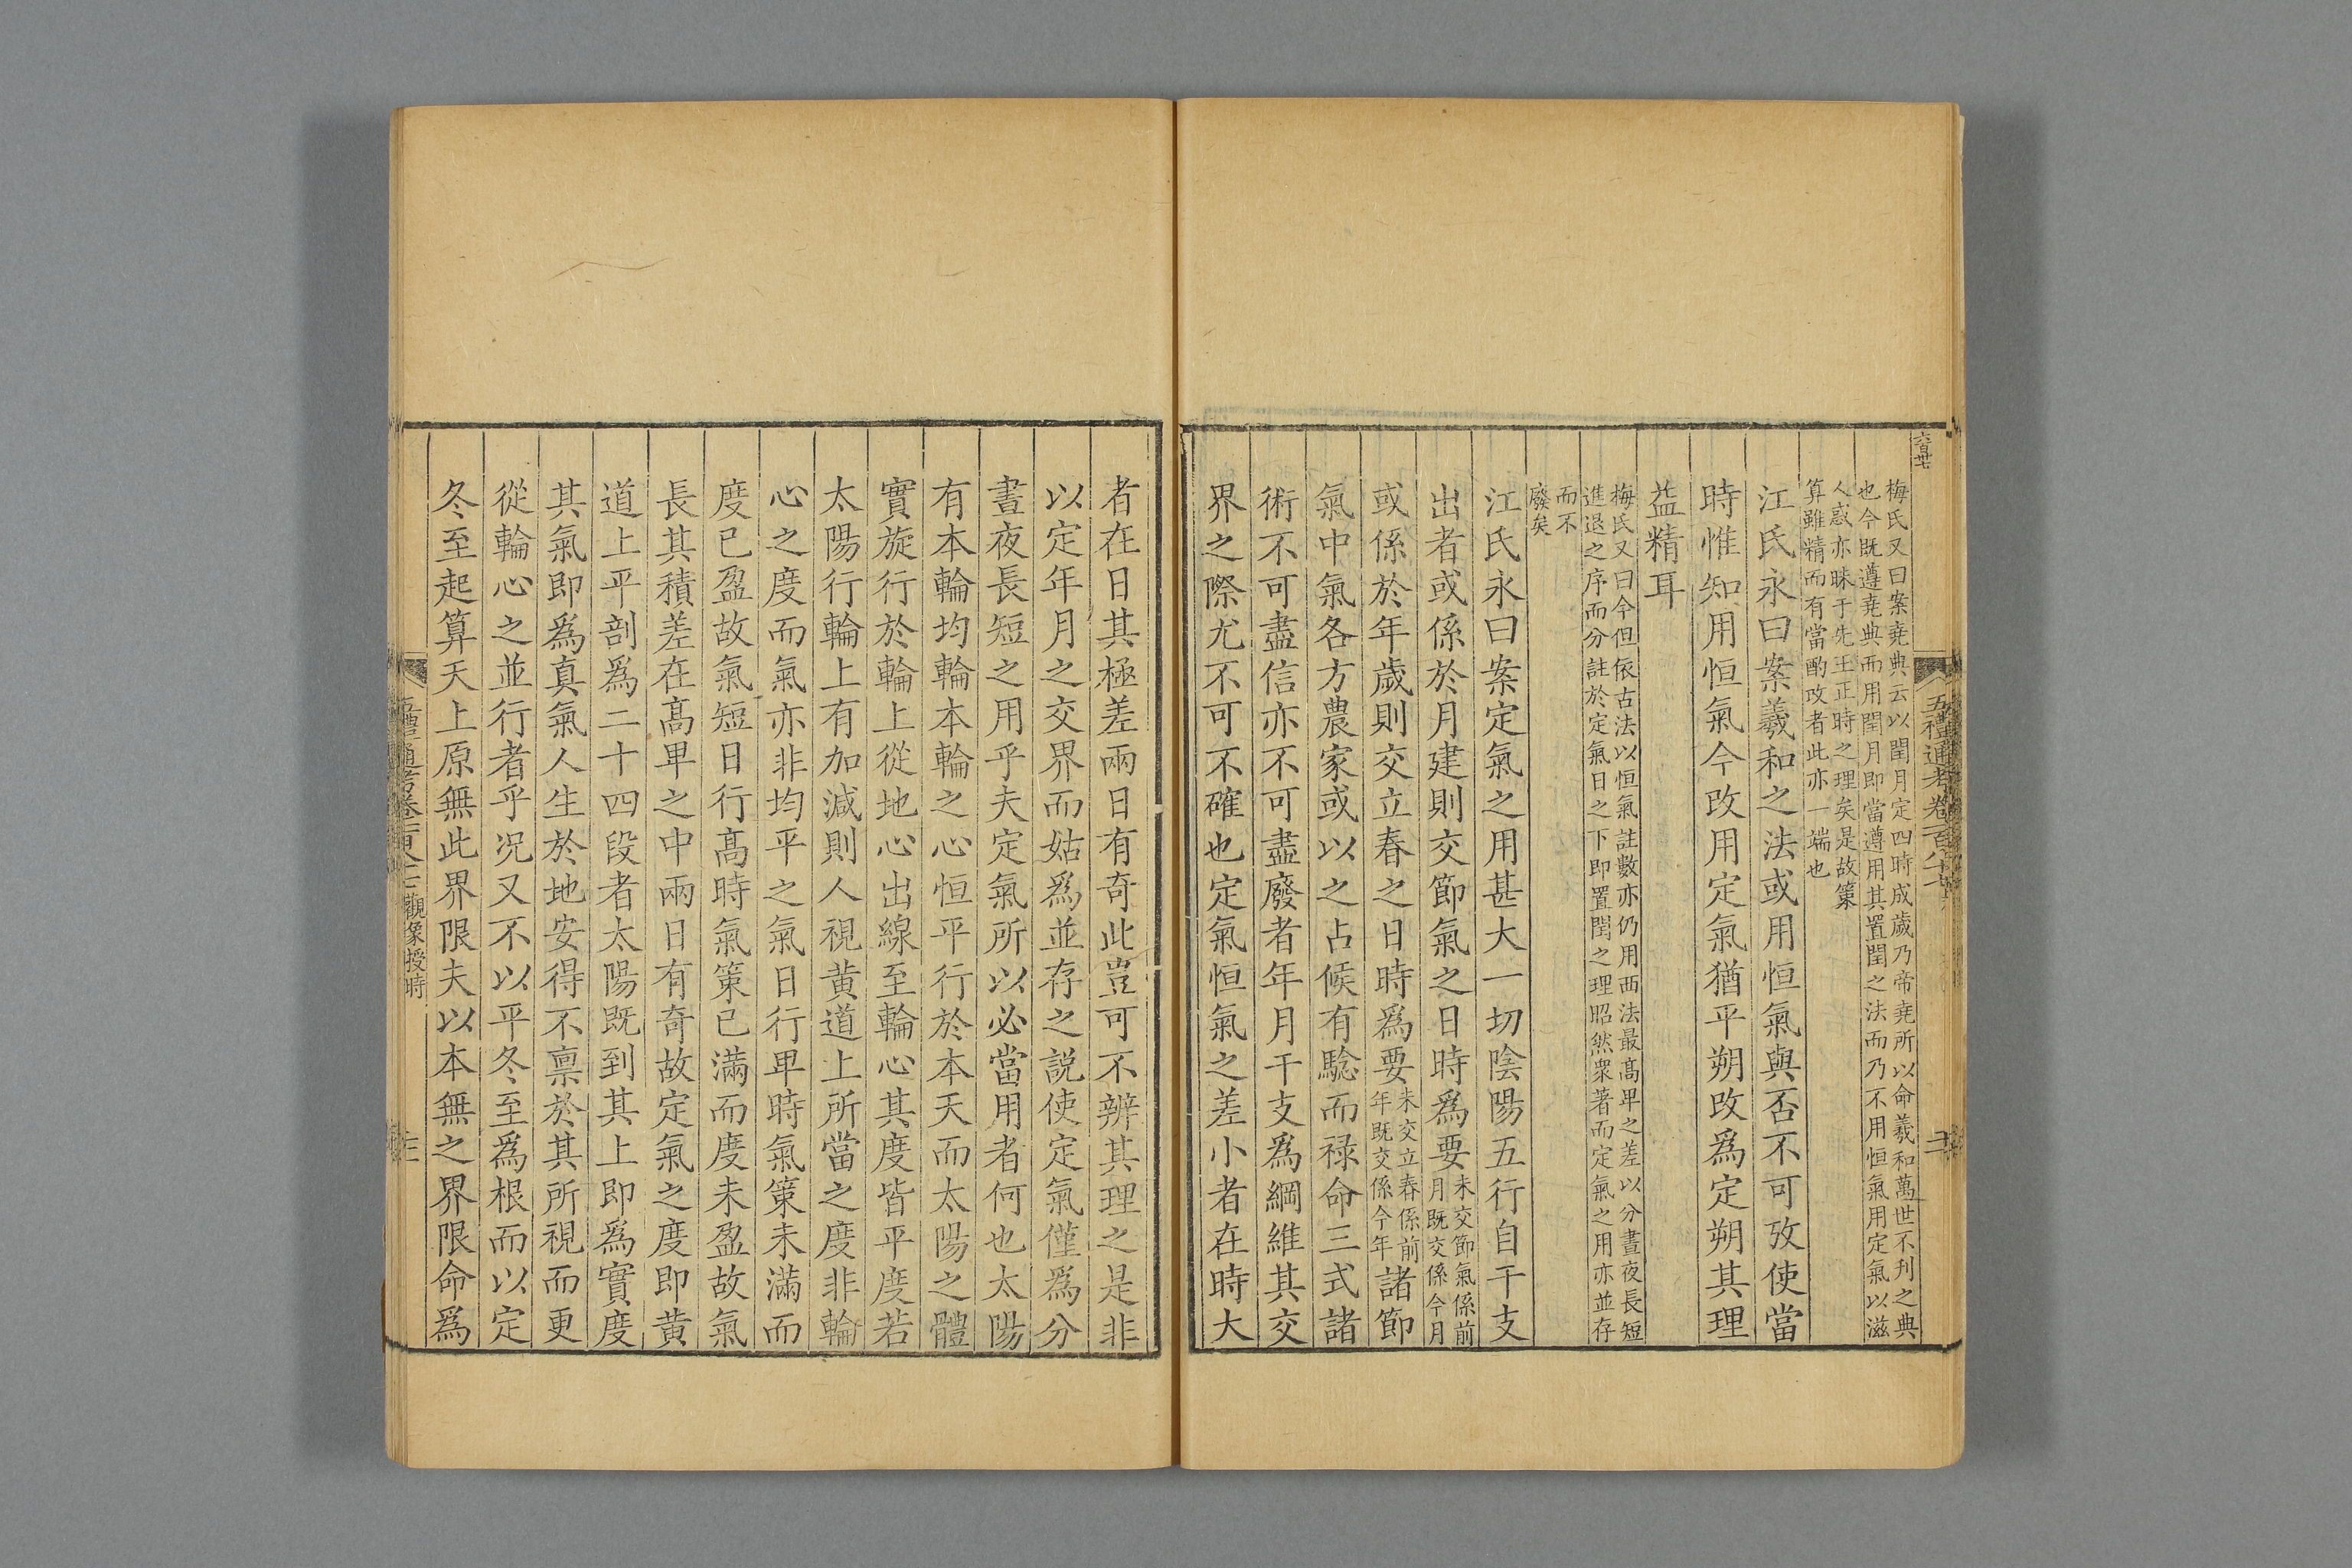 六百廿七
五禮通考卷一百八十七
梅氏又曰案堯典云以閏月定四時成歲乃帝堯所以命羲和萬世不刋之典
也今既遵堯典而用閏月即當遵用其置閏之法而乃不用恒氣用定氣以滋
人惑亦昧于先王正時之理矣是故策
算雖精而有當酌攺者此亦一端也
江氏永曰案羲和之法或用恒氣與否不可攷使當
時惟知用恒氣今攺用定氣猶平朔攺爲定朔其理
益精耳
梅氏又曰今但依古法以恒氣註數亦仍用西法最髙卑之差以分晝夜長短
進退之序而分註於定氣日之下即置閏之理昭然衆著而定氣之用亦並存
而不
廢矣
江氏永曰案定氣之用甚大一切陰陽五行自干支
出者或係於月建則交節氣之日時爲要未交節氣係前月既交係今月
或係於年歲則交立春之日時爲要未交立春係前年既交係今年諸節
氣中氣各方農家或以之占候有騐而禄命三式諸
術不可盡信亦不可盡廢者年月干支爲綱維其交
界之際尤不可不確也定氣恒氣之差小者在時大
者在日其極差兩日有奇此豈可不辨其理之是非
以定年月之交界而姑爲並存之説使定氣僅爲分
晝夜長短之用乎夫定氣所以必當用者何也太陽
有本輪均輪本輪之心恒平行於本天而太陽之體
實旋行於輪上從地心出線至輪心其度皆平度若
太陽行輪上有加減則人視黄道上所當之度非輪
心之度而氣亦非均平之氣日行卑時氣策未滿而
度已盈故氣短日行髙時氣策已滿而度未盈故氣
長其積差在髙卑之中兩日有奇故定氣之度即黄
道上平剖爲二十四段者太陽既到其上即爲實度
其氣即爲真氣人生於地安得不禀於其所視而更
從輪心之並行者乎况又不以平冬至爲根而以定
冬至起算天上原無此界限夫以本無之界限命爲
觀象授時